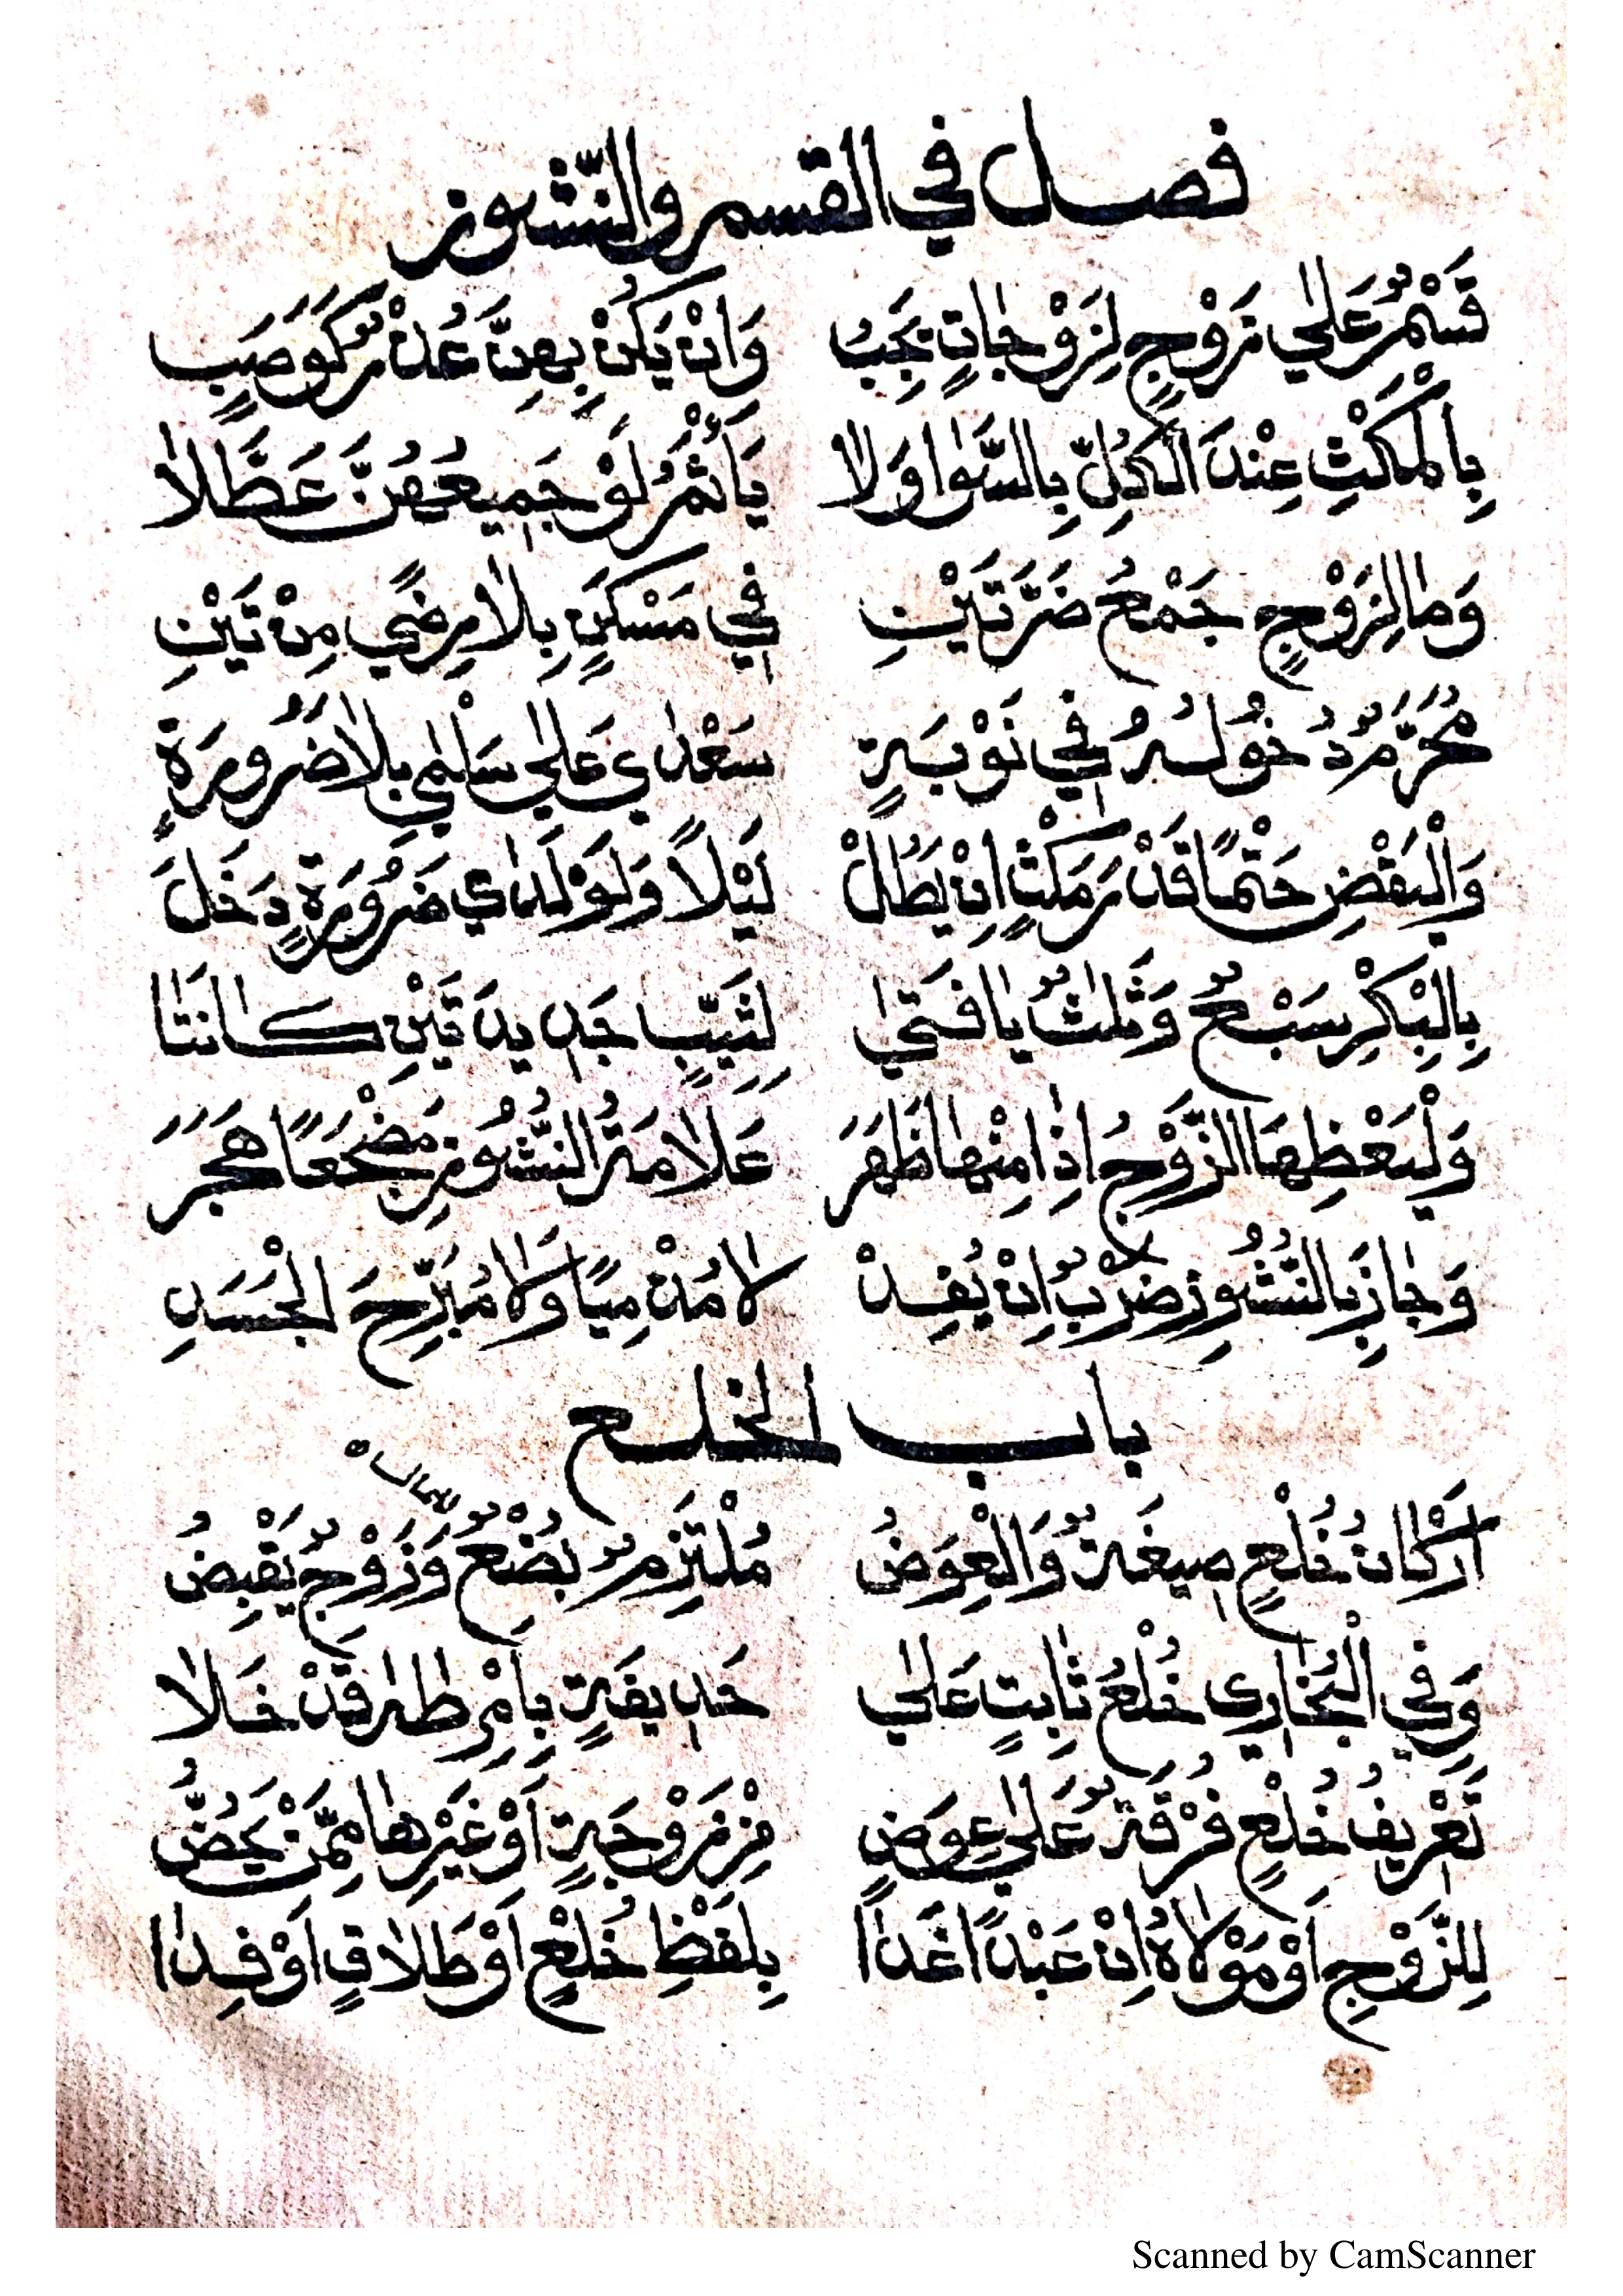 فصل في القسم والنّشوز
قَسْمٌ عَلٰى زَوْجٍ لِزَوْجَاتٍ يَجِبُ وَاِنْ يَكُنْ بِهِنَّ عُذْرٌ كَوَصَبٍ
بِالْمَكْثِ عِنْدَ الْكُلِّ بِالسَّوٰا وَلَا يَأْثَمُ لَوْ جَمِيعُهُنَّ عَطَّلَا
وَمٰا لِزَوْجٍ جَمْعُ ضَرَّتَيْنِ فِي مَسْكَنٍ بِلَا رِضًى مِنْ تَيْنِ
مُحَرَّمٌ دُخُولُهُ فِي نَوْبَةِ سَعْدٰى عَلٰى سَلْمٰى بِلَا ضَرُورَةٍ
وَلْيَقْضِ حَتْمًا قَدْرَ مَكْثٍ اِنْ يَطُلْ لَيْلًا وَلَوْ لَدٰى ضَرُورَةٍ دَخَلَ
بِالْبِكْرِ سَبْعٌ وَثَلٰثٌ يٰا فَتٰى لِثَيِّبٍ جَدِيدَتَيْنِ كَانَتٰا
وَلْيَعْظِهَا الزَّوْجُ اِذَا مِنْهٰا ظَهَرَ عَلَامَةُ النُّشُوزِ مَضْجَعًا هَجَرَ
وَجٰازَ بِالنُّشُوزِ ضَرْبٌ اِنْ يُفِدْ لَا مُدْمِيًا وَلَا مُبَرِّحَ الْجَسَدِ
باب الخلع
اَرْكَانُ خُلْعٍ صِيغَةٌ وَالْعِوَضُ مُلْتَزِمٌ بُضْعٌ وَزَوْجٌ يَقْبِضُ
وَفِي الْبُخَارِي خُلْعُ ثَابِتٍ عَلٰى حَدِيقَةٍ بِاَمْرِ طٰهٰ قَدْ خَلَا
تَعْرِيفُ خُلْعٍ فُرْقَةٌ عَلٰى عِوَضٍ مِنْ زَوْجَةٍ اَوْ غَيْرِهٰا مِمَّنْ يَحُضُّ
لِلزَّوْجِ اَوْ مَوْلَاهُ اِنْ عَبْدًا غَدَا بِلَفْظِ خُلْعٍ اَوْ طَلَاقٍ اَوْ فِدَا
Scanned by CamScanner